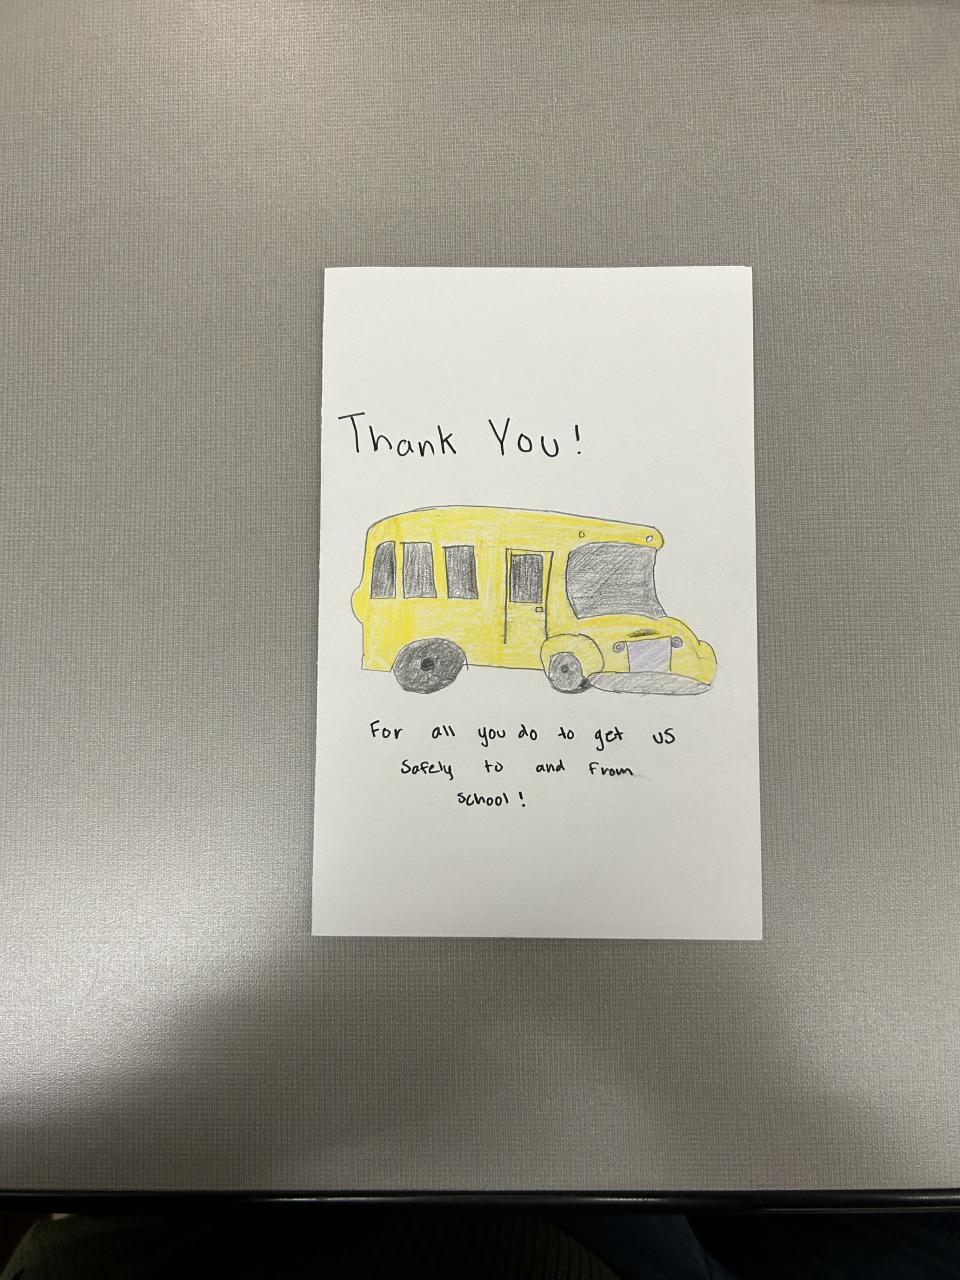 Thank You!
For all you do to get us
safely to and from
school!